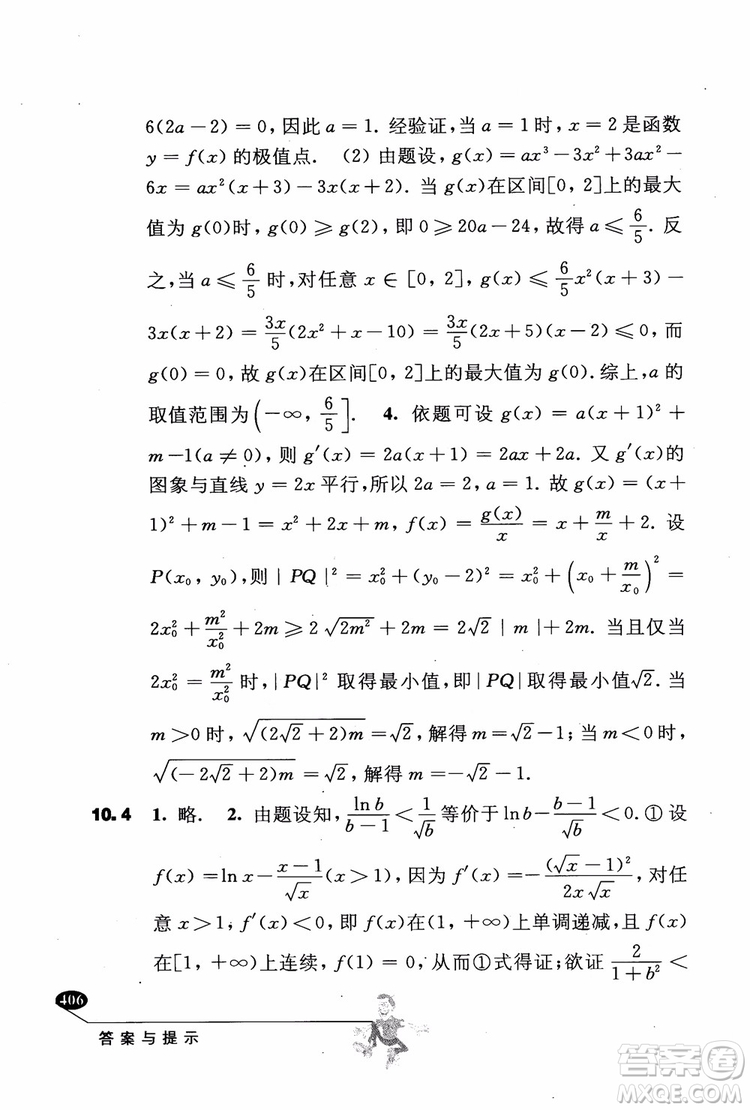 6(2a－2)＝0, 因此 a＝1. 经验证,当 a＝1时, x＝2 是函数
y＝f(x) 的极值点. (2) 由题设, g(x)＝ax³－3x²＋3ax²－
6x＝ax²(x＋3)－3x(x＋2). 当 g(x)在区间[0, 2]上的最大
值为 g(0)时, g(0)≥g(2), 即 0≥20a－24, 故得 a≤6/5. 反
之,当 a≤6/5 时,对任意 x∈[0, 2], g(x)≤6/5x²(x＋3)－
3x(x＋2)＝3x/5(2x²＋x－10)＝3x/5(2x＋5)(x－2)≤0, 而
g(0)＝0, 故 g(x)在区间[0, 2]上的最大值为 g(0). 综上, a 的
取值范围为(－∞, 6/5]. 4. 依题可设 g(x)＝a(x＋1)²＋
m－1(a≠0), 则 g′(x)＝2a(x＋1)＝2ax＋2a. 又 g′(x)的
图象与直线 y＝2x 平行,所以 2a＝2, a＝1. 故 g(x)＝(x＋
1)²＋m－1＝x²＋2x＋m, f(x)＝g(x)/x＝x＋m/x＋2. 设
P(x₀, y₀), 则|PQ|²＝x₀²＋(y₀－2)²＝x₀²＋(x₀＋m/x₀)²＝
2x₀²＋m²/x₀²＋2m≥2√(2m²)＋2m＝2√2|m|＋2m. 当且仅当
2x₀²＝m²/x₀² 时, |PQ|² 取得最小值,即|PQ|取得最小值√2. 当
m＞0时, √((2√2＋2)m)＝√2, 解得 m＝√2－1; 当 m＜0时,
√((－2√2＋2)m)＝√2, 解得 m＝－√2－1.
10.4 1. 略. 2. 由题设知, ln b/(b－1)＜1/√b 等价于 ln b－(b－1)/√b＜0. ① 设
f(x)＝ln x－(x－1)/√x(x＞1), 因为 f′(x)＝－(√x－1)²/(2x√x), 对任
意 x＞1, f′(x)＜0, 即 f(x)在(1, ＋∞)上单调递减,而 f(x)
在[1, ＋∞)上连续, f(1)＝0, 从而①式得证;欲证 2/(1＋b²)＜
406
答案与提示
答案卷
MXQE.COM